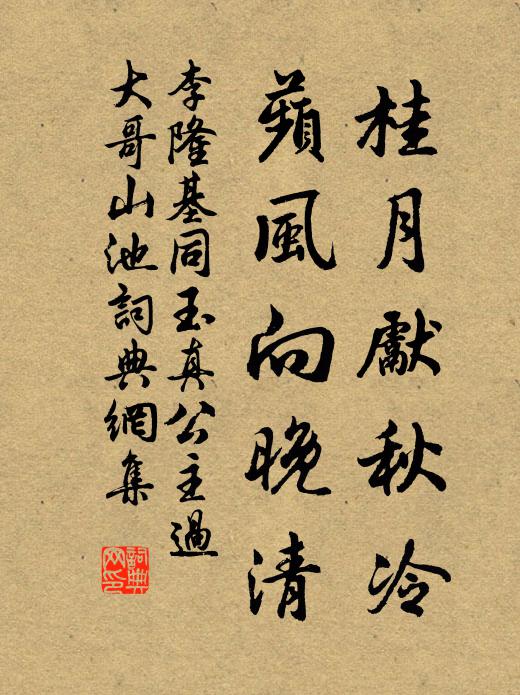 桂月獻秋冷
蘋風向晚清
李隆基同玉真公主過
大哥山池詞典網集
詞典
网印